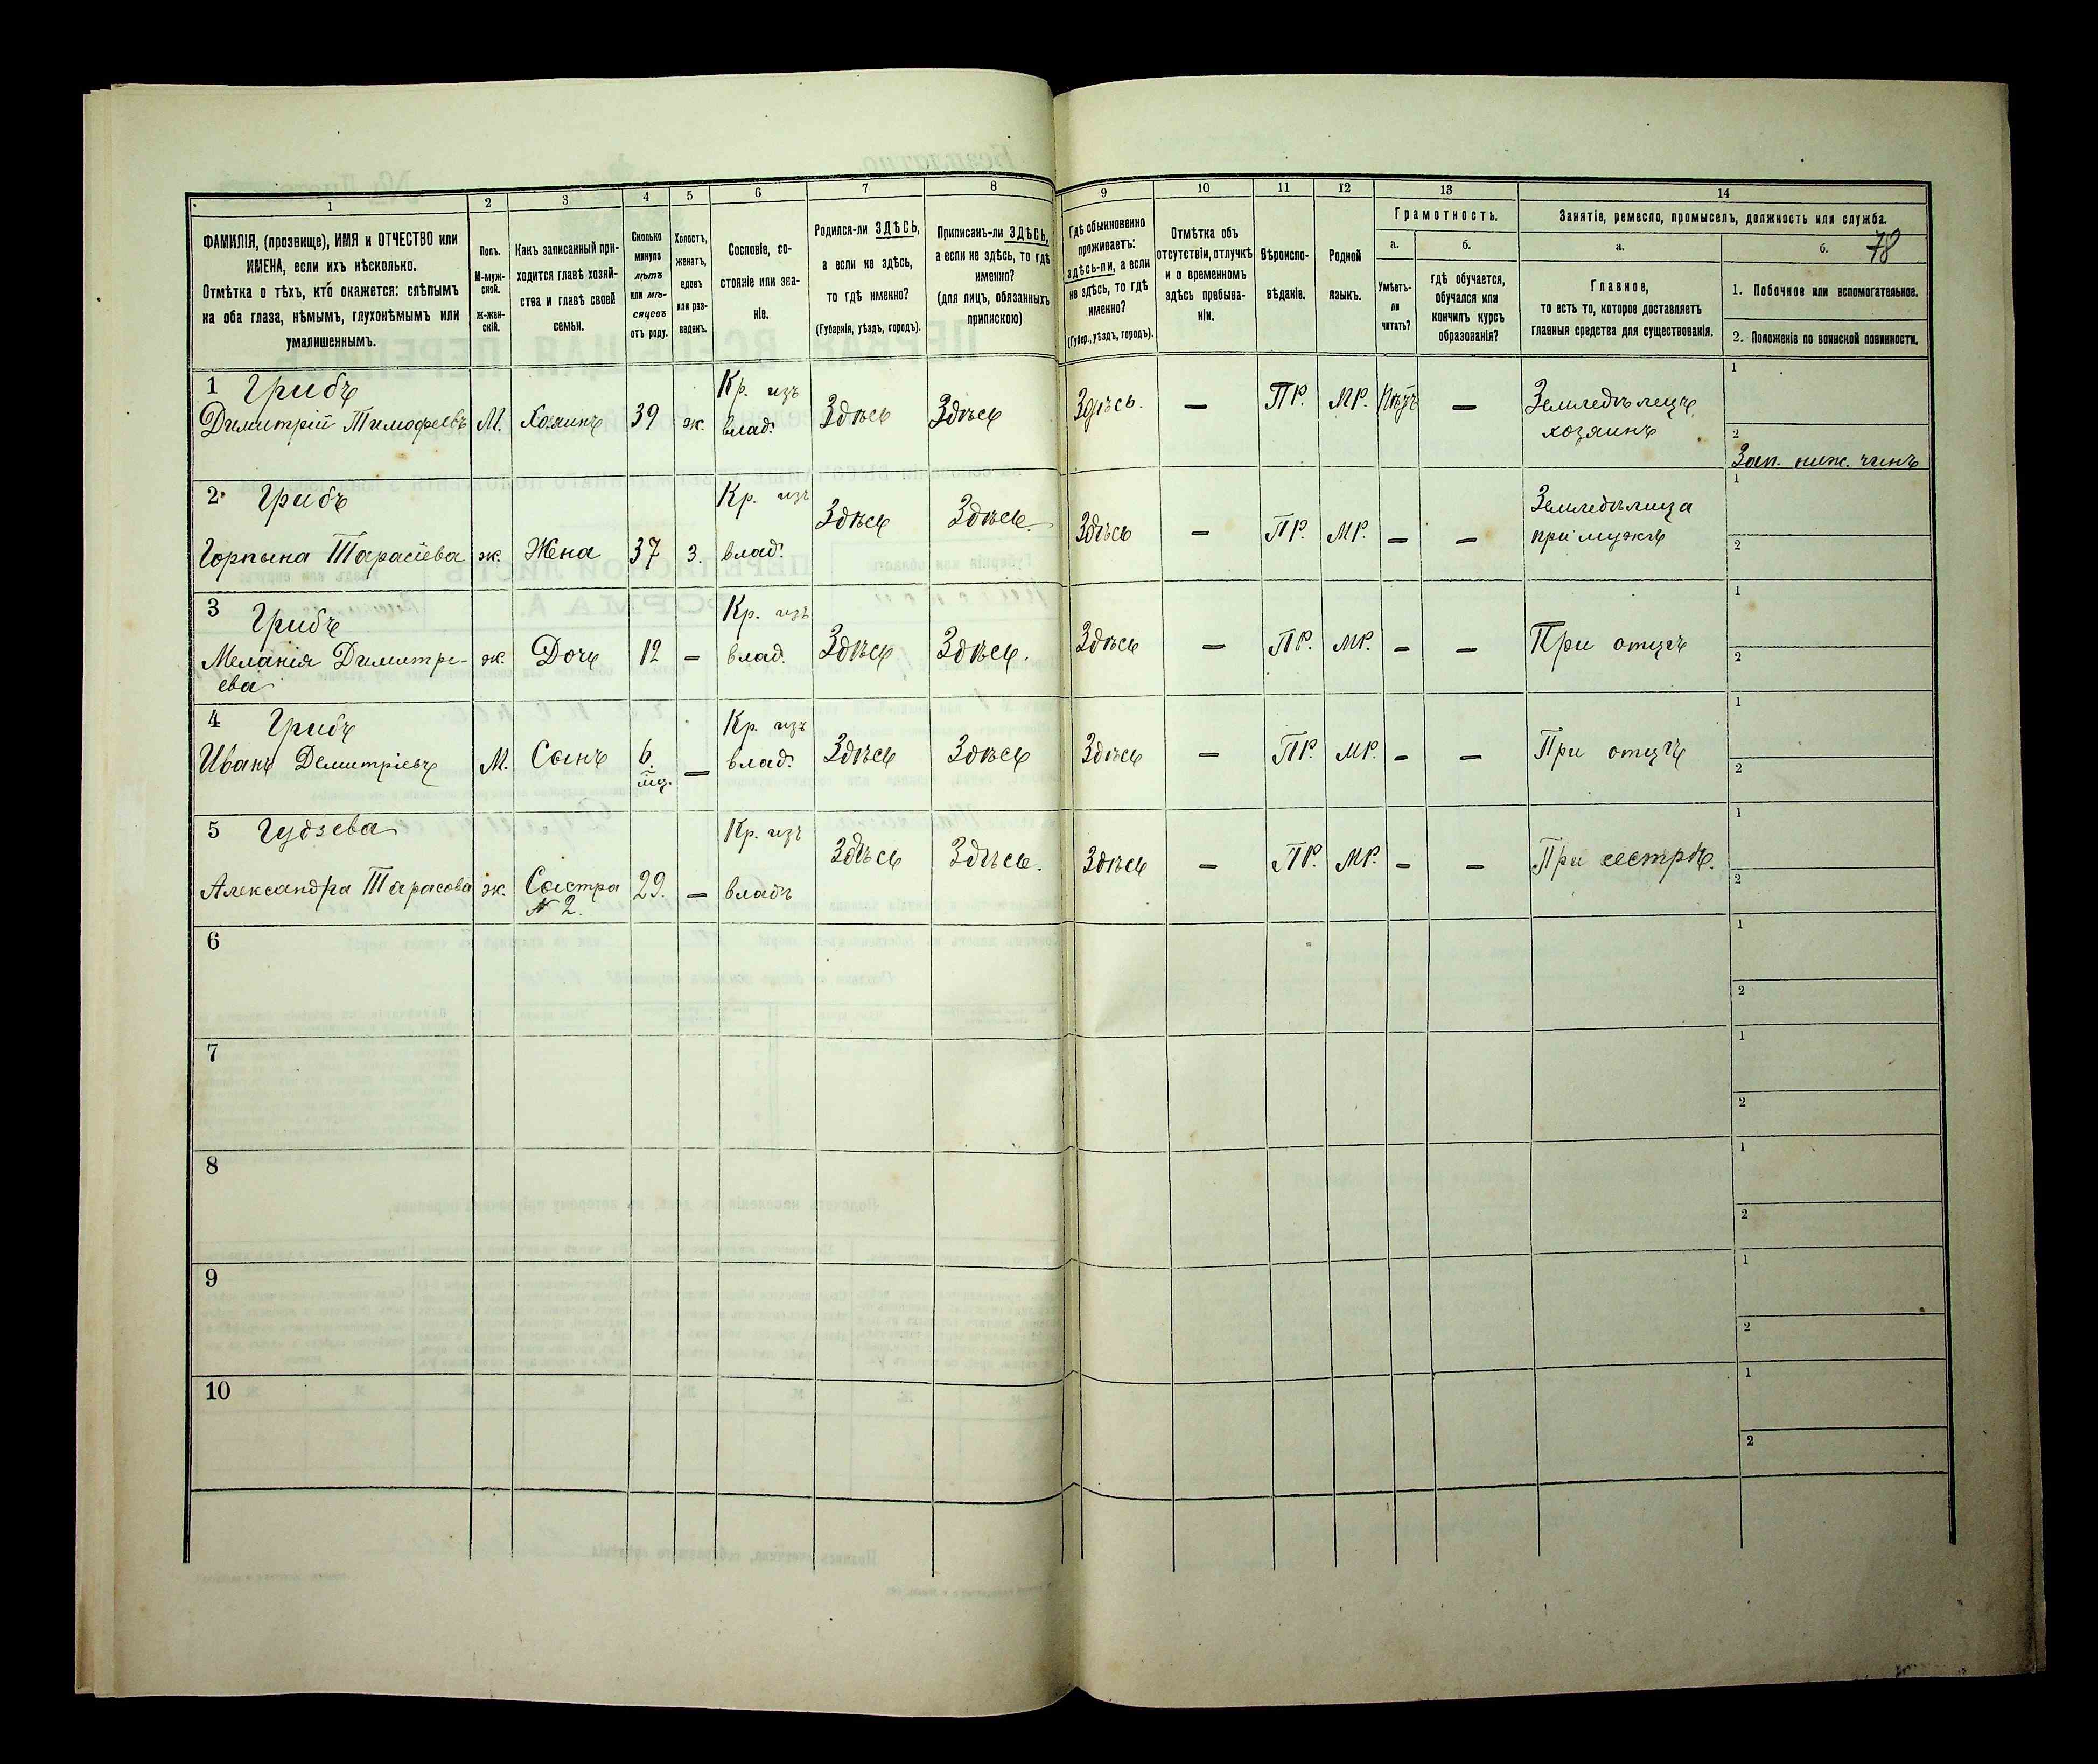 1
2
3
4
5
6
7
8
9
10
11
12
13
14
78
ФАМИЛІЯ, (прозвище), ИМЯ и ОТЧЕСТВО или
ИМЕНА, если ихъ нѣсколько.
Отмѣтка о тѣхъ, кто́ окажется: слѣпымъ
на оба глаза, нѣмымъ, глухонѣмымъ или
умалишеннымъ.
Полъ.
М-муж-
ской.
Ж-жен-
скій.
Какъ записанный при-
ходится главѣ хозяй-
ства и главѣ своей
семьи.
Сколько
минуло
лѣтъ
или мѣ-
сяцевъ
отъ роду.
Холостъ,
женатъ,
вдовъ
или раз-
веденъ.
Сословіе, со-
стояніе или зва-
ніе.
Родился-ли ЗДѢСЬ,
а если не здѣсь,
то гдѣ именно?
(Губернія, уѣздъ, городъ).
Приписанъ-ли ЗДѢСЬ,
а если не здѣсь, то гдѣ
именно?
(для лицъ, обязанныхъ
припискою)
Гдѣ обыкновенно
проживаетъ:
здѣсь-ли, а если
не здѣсь, то гдѣ
именно?
(Губер., уѣздъ, городъ).
Отмѣтка объ
отсутствіи, отлучкѣ
и о временномъ
здѣсь пребыва-
ніи.
Вѣроиспо-
вѣданіе.
Родной
языкъ.
Грамотность.
а.
Умѣетъ-
ли
читать?
б.
гдѣ обучается,
обучался или
кончилъ курсъ
образованія?
Занятіе, ремесло, промыселъ, должность или служба.
а.
Главное,
то есть то, которое доставляетъ
главныя средства для существованія.
б.
1. Побочное или вспомогательное.
2. Положеніе по воинской повинности.
1 Грибъ
Димитрій Тимофеевъ М. Хозяинъ 39 ж. Кр. изъ
влад. Здѣсь Здѣсь Здѣсь. — ПР. МР. — Земледѣлецъ,
хозяинъ
1
2
Зап. ниж. чинъ
2 Грибъ
Горпына Тарасіева ж. Жена 37 з. Кр. изъ
влад. Здѣсь Здѣсь. Здѣсь — ПР. МР. — — Земледѣлица
при мужѣ
1
2
3 Грибъ
Меланія Димитрі-
ева ж. Дочь 12 — Кр. изъ
влад. Здѣсь Здѣсь. Здѣсь — ПР. МР. — — При отцѣ
1
2
4 Грибъ
Иванъ Демитріевъ М. Сынъ 6.
мц. — Кр. изъ
влад. Здѣсь Здѣсь Здѣсь — ПР. МР. — — При отцѣ
1
2
5 Гудзева
Александра Тарасова ж. Сестра
№ 2. 29. — Кр. изъ
владъ Здѣсь Здѣсь. Здѣсь — ПР. МР. — — При сестрѣ.
1
2
6
1
2
7
1
2
8
1
2
9
1
2
10
1
2